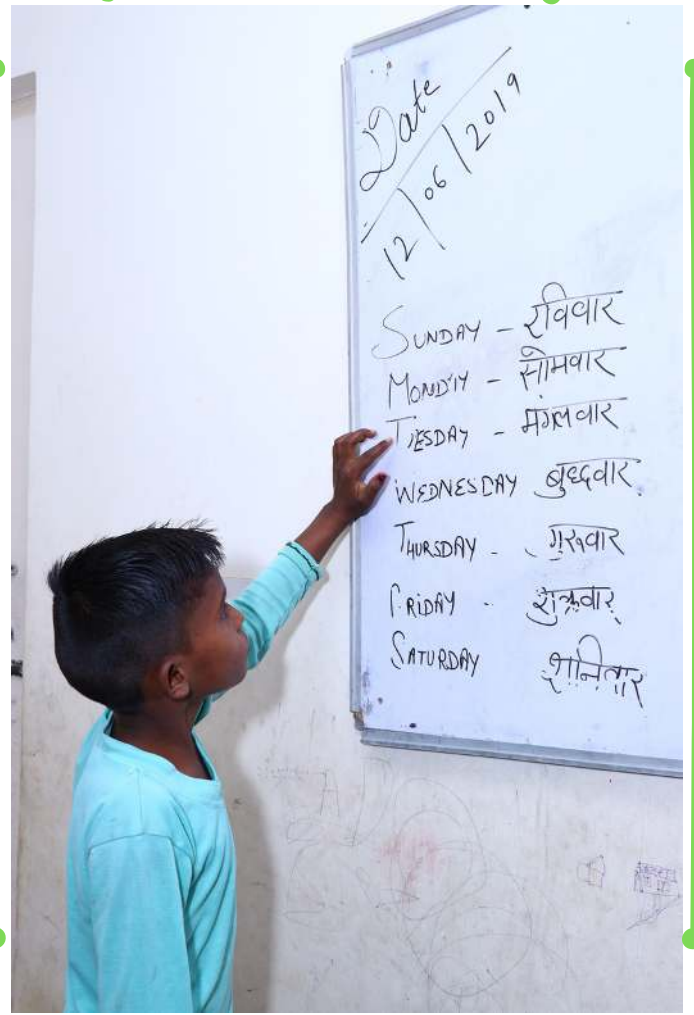 Date
12/06/2019
SUNDAY - रविवार
MONDAY - सोमवार
TUESDAY - मंगलवार
WEDNESDAY बुध्दवार
THURSDAY - गुरुवार
FRIDAY - शुक्रवार
SATURDAY शनिवार